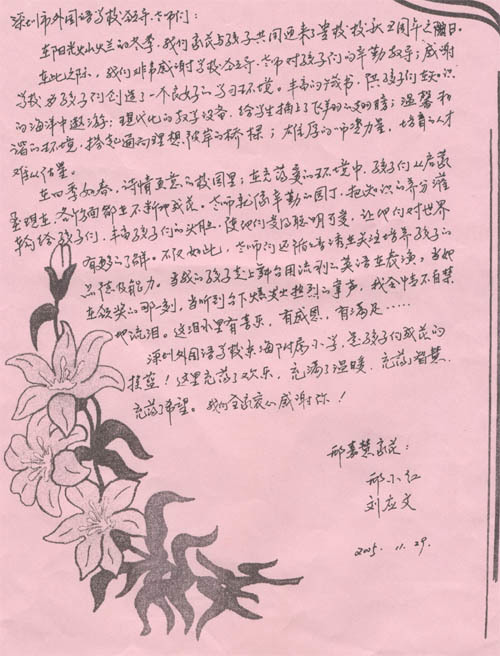 深圳市外国语学校领导、老师们：
在阳光灿烂的冬季，我们家长与孩子共同迎来了学校校秋五周年之日。
在此之际，我们非常感谢学校领导、老师对孩子们的辛勤教导；感谢
学校为孩子们创造了一个良好的学习环境。丰富的读书，供孩子们在知识
的海洋中遨游；现代化的教学设备，给学生插上了飞翔的翅膀；温馨和
谐的环境，搭起通向理想彼岸的桥梁；雄厚的师资力量，培育的人才
难以估量。
在四季如春，诗情画意的校园里；在充满爱的环境中，孩子们从启蒙
至现在，各方面都在不断地成长。老师就像辛勤的园丁，把知识的养分灌
输给孩子们，丰富孩子们的头脑，使他们变得聪明可爱，让他们对世界
有更多的了解。不仅如此，老师们还注重培养孩子的
品德及能力。当我的孩子走上舞台用流利的英语在表演，当她
在领奖的那一刻，当听到台下爆发出热烈的掌声，我会情不自禁
地流泪。这泪水里有喜乐，有感恩，有满足……
深圳外国语学校东海附属小学，是孩子们成长的
摇篮！这里充满了欢乐，充满了温暖，充满智慧，
充满了希望。我们全家衷心感谢你！
邢嘉慧家长：
邢小红
刘应文
2005.11.29.